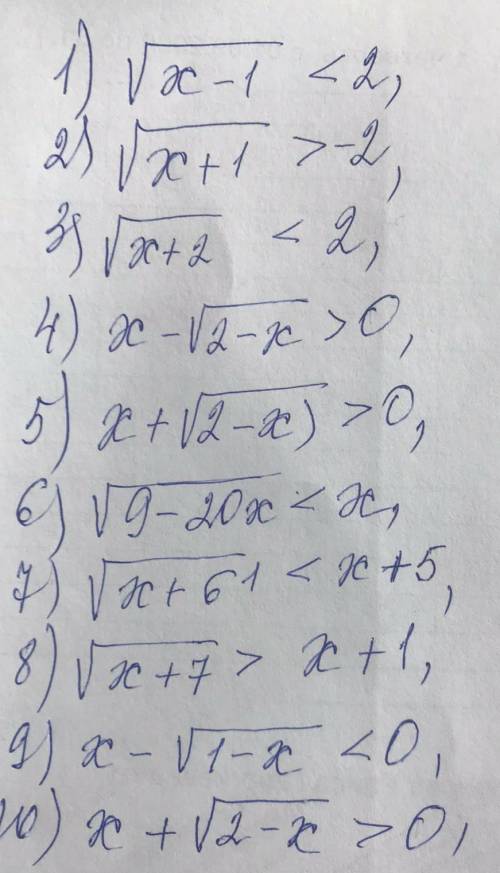 1) √(x-1) < 2,
2) √(x+1) > -2,
3) √(x+2) < 2,
4) x - √(2-x) > 0,
5) x + √(2-x) > 0,
6) √(9-20x) < x,
7) √(x+6) < x+5,
8) √(x+7) > x+1,
9) x - √(1-x) < 0,
10) x + √(2-x) > 0,